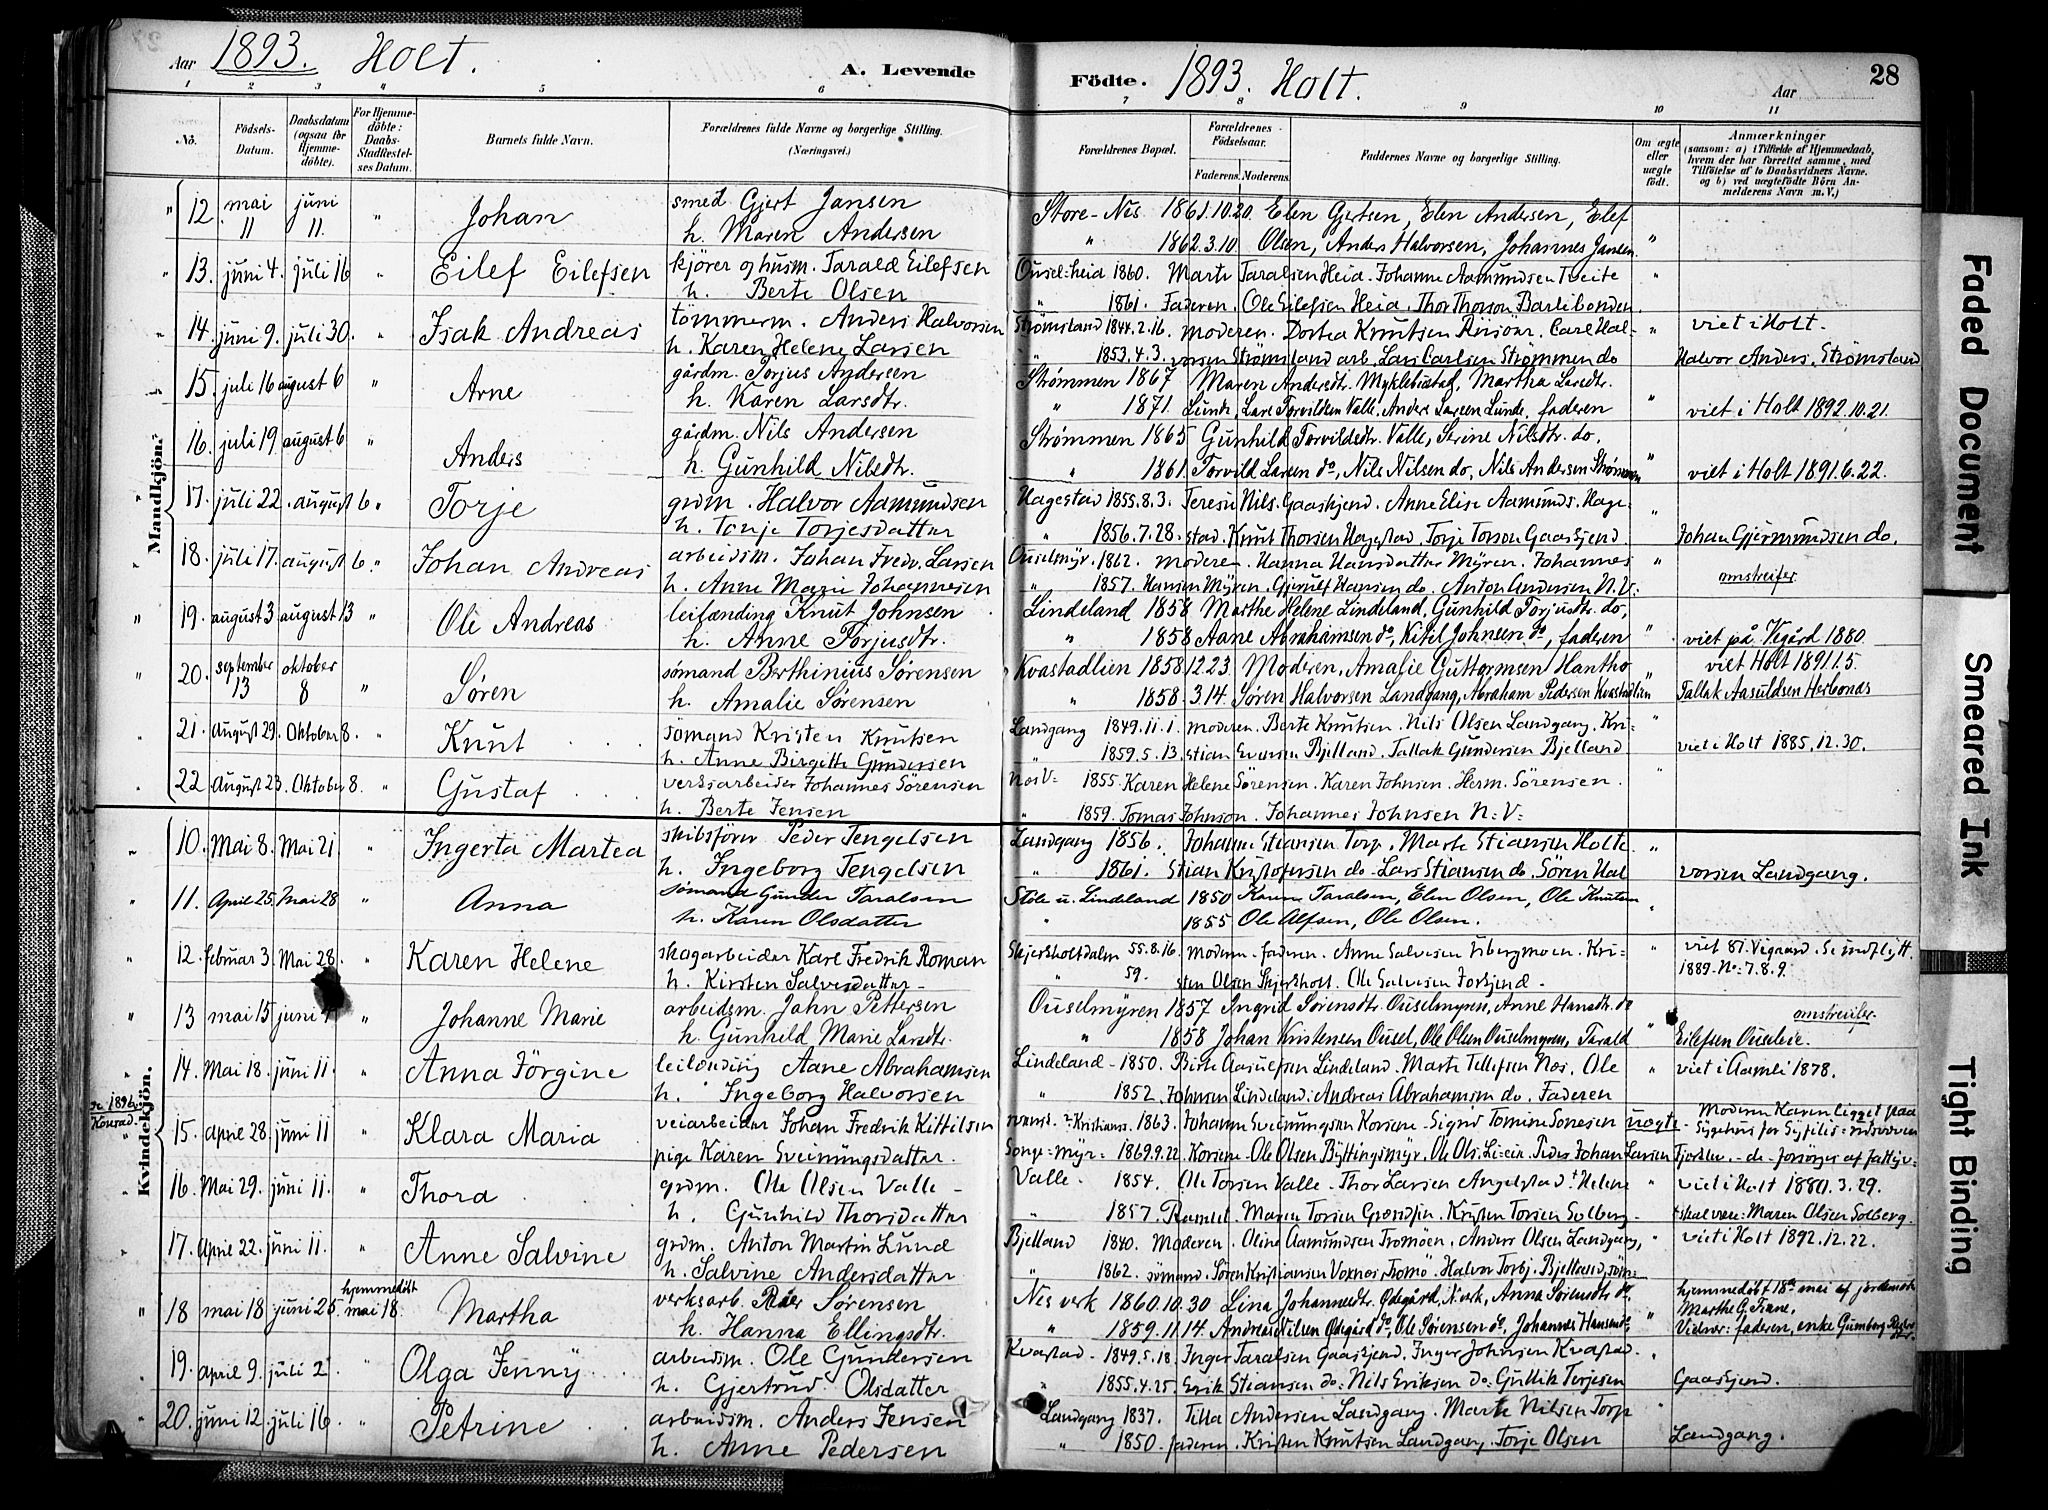 Aar 1893. Holt. A. Levende
Födte. 1893. Holt. Aar 28
1 2 3 4 5 6 7 8 9 10 11
No. Födsels-Datum. Daabsdatum (ogsaa for Hjemmedöbte). For Hjemmedöbte: Daabs-Stadfæstelses Datum. Barnets fulde Navn. Forældrenes fulde Navne og borgerlige Stilling. (Næringsvei.)
Forældrenes Bopæl. Forældrenes Födselsaar. Faderens. Moderens. Faddernes Navne og borgerlige Stilling. Om ægte eller uægte födt. Anmærkninger (saasom: a) i Tilfælde af Hjemmedaab, hvem der har forrettet samme, med Tilföielse af to Daabsvidners Navne. og b) ved uægtefödte Börn Anmelderens Navn m. V.)
Mandkjön.
12 mai 11 juni 11. " Johan smed Gjert Jansen Store-Nes 1861.10.20. Elen Gjertsen, Elen Andersen, Elef
h. Maren Andersen " 1862.3.10. Olsen, Anders Halvorsen, Johannes Jansen. "
13. juni 4. juli 16 " Eilef Eilefsen kjører og husm. Tarald Eilefsen Ousel-heid 1860. Marte Taralsen Heia. Johanne Aamundsen Tveite "
h. Berte Olsen " 1861. Faderen. Ole Eilefsen Heia. Thor Thorson Barlibonden.
14. juni 9. juli 30. " Isak Andreas tømmerm. Anders Halvorsen Strømsland 1844.2.16. moderen. Dortea Knutsen Riisöar. Carl Hal- " viet i Holt.
h. Karen Helene Larsen " 1853.4.3. vorsen Strømsland arb. Lars Carlsen Strømmen do Halvor Anders. Strømsland
15. juli 16 august 6 " Arne gårdm. Torjus Andersen Strømmen 1867 Maren Andersdtr. Myklebustad, Martha Larsdtr.
h. Karen Larsdtr. " 1871. Lunde, Lars Torvildsen Valle. Anders Larsen Lunde. faderen " viet i Holt 1892.10.21.
16. juli 19 august 6 " Anders gårdm. Nils Andersen Strømmen 1865 Gunhild Torvildsdtr. Valle, Serine Nilsdtr. do.
h. Gunhild Nilsdtr. " 1861. Torvild Larsen do, Nils Nilsen do, Nils Andersen Strømmen " viet i Holt 1891.6.22.
17. juli 22. august 6 " Torje grdm. Halvor Aamundsen Hagestad 1855.8.3. Nils. Gaaskjend. Anne Elise Aamunds. Hage- "
h. Torjesdatter " 1856.7.28. stad. Knut Thorsen Hagestad. Torje Torson Gaaskjend. Johan Gjermundsen do.
18. juli 17. august 6. " Johan Andreas arbeidsm. Johan Fredr. Larsen Ouselmyr. 1862. moderen. Hanna Hansdatter Myren. Johannes "
h. Anne Marie Johannesen " 1857. Hansen Myren. Hansen do. Anton Andersen N.V: omstreifer.
19. august 3 august 13 " Ole Andreas leilænding Knut Johnsen Lindeland 1858 Marthe Helene Lindeland, Gunhild Torjusdtr. do,
h. Anne Torjusdtr. " 1858 Aane Abrahamsen do, Kitil Johnsen do, faderen " viet på Vegård 1880.
20. september 13 oktober 8 " Søren sømand Berthinius Sørensen Kvastadlien 1858.12.23. Moderen, Amalie Guttormsen Hantho " viet Holt 1891.1.5.
h. Amalie Sørensen " 1858.3.14. Søren Halvorsen Landgang, Abraham Pedersen Kvastadlien Tallak Aasuldsen Herbonds
21. august 29. Oktober 8. " Knut sømand Kristen Knutsen Landgang 1849.11.1. moderen. Berte Knutsen. Nils Olsen Landgang. Kri= "
h. Anne Birgitte Gundersen " 1859.5.13. stian Evensen Bjelland. Tallak Gundersen Bjelland viet i Holt 1885.12.30.
22 August 23. Oktober 8. " Gustaf verksarbeider Johannes Sörensen Nes V= 1855. Karen Helene Sørensen. Karen Johnsen. Herm. Sörensen. "
h. Berte Jensen " 1859. Tomas Johnson. Johannes Johnsen N:V:
Kvindekjön.
10. Mai 8. Mai 21 " Ingerta Martea skibsförer Peder Tengelsen Landgang 1856. Johanne Stiansen Torp. Marte Stiansen Holte. "
h. Ingeborg Tengelsen " 1861. Stian Kristofersen do. Lars Stiansen do. Sören Hal vorsen Landgang.
11. April 25. Mai 28 " Anna sømand Gunder Taralsen Støle u. Lindeland 1850 Karen Taralsen, Elen Olsen, Ole Knutsen
h. Karen Olsdatter " 1855 Ole Alfsen, Ole Olsen. "
12. februar 3. Mai 28. " Karen Helene skogarbeider Karl Fredrik Roman Skjerkholtdalm 55.8.16. moderen. faderen. Anne Salvesen Ubergmoen. Kri= " viet 81. Vegaard. Se indflytt.
h. Kirsten Salvesdatter " 59. sten Olsen Skjerkholt. Ole Salvesen Torkjend. 1889. No: 7.8.9.
13 mai 15 juni " Johanne Marie arbeidsm. John Pettersen Ouselmyren 1857 Ingrid Sørensdtr. Ouselmyren, Anne Hansdtr. do " omstreifer.
h. Gunhild Marie Larsdtr. " 1858 Johan Kristensen Ousel, Ole Olsen Ouselmyren, Tarald Eilefsen Ouselheie.
14. Mai 18. juni 11. " Anna Jörgine leilænding Aane Abrahamsen Lindeland 1850. Birte Lindeland. Marte Tellefsen Nes. Ole " viet i Aamli 1878.
h. Ingeborg Halvorsen " 1852. Johnsen Lindeland. Andreas Abrahamsen do. Faderen
se 1896. Konrad.
15. april 28. juni 11 " Klara Maria veiarbeider Johan Fredrik Kittilsen Kristians. 1863. Johanne Sveinungsen Korsene. Sigrid Sonesen uægte Moderen Karen ligget paa Sygehus for Syfilis
pige Karen Sveinungsdatter. Songe=Myr= 1869.9.22. Korsene. Ole Olsen Byttingsmyr. Johan Larsen
16. Mai 29. juni 11. " Thora grdm. Ole Olsen Valle Valle. 1854. Ole Torsen Valle. Thor Larsen Angelstad † Helene " viet i Holt 1880.3.29.
h. Gunhild Thorsdatter " 1857. Maren Torsen. Kristen Torsen Solberg. † skal være: Maren Olsen Solberg.
17. April 22. juni 11. " Anne Salvine grdm. Anton Martin Lund Bjelland 1840. Moderen. Oline Aamundsen Tromöen. Anders Olsen Landgang, " viet i Holt 1892.12.22.
h. Salvine Andersdatter " 1862. sømand. Sören Kristiansen Voxnes, Tromö. Halvor Torbj. Bjelland, söm=
18 mai 18 juni 25. hjemmedøbt mai 18. Martha verksarb. Peder Sørensen Nes verk 1860.10.30 Lina Johannesdtr. Ødegård, N.verk, Anna Sørensdtr. do, hjemmedøbt 18de mai af jordemor Marthe G. Tiane.
h. Hanna Ellingsdtr. " 1859.11.14. Andreas Nilsen Ødegård do, Ole Sørensen do, Johannes Hansen do " Vidner: faderen, enke Gumborg
19. april 9. juli 2 " Olga Jenny arbeidsm. Ole Gundersen Kvastad 1849.5.18. Inger Taralsen Gaaskjend. Inger Johnsen Kvastad. "
h. Gjertrud Olsdatter " 1855.4.25. Erik Stiansen do: Nils Eriksen do: Gullik Terjesen Gaaskjend.
20. juni 12. juli 16. " Petrine arbeidsm. Anders Jensen Landgang 1837. Tilla Andersen Landgang. Marte Nilsen Torp "
h. Anne Pedersen " 1850. faderen. Kristen Knutsen Landgang. Torje Olsen Landgang.
Faded Document
Smeared Ink
Tight Binding